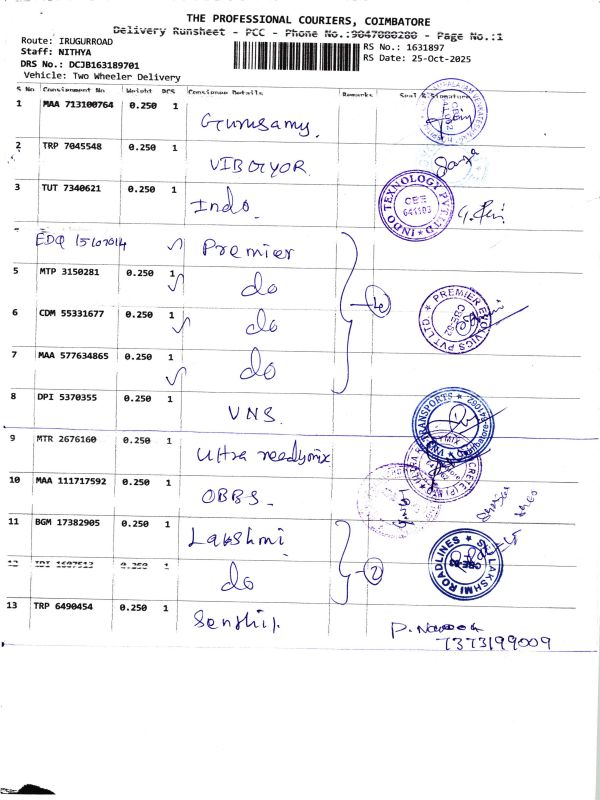 THE PROFESSIONAL COURIERS, COIMBATORE
Delivery Runsheet - PCC - Phone No.:9047080280 - Page No.:1
Route: IRUGURROAD
RS No.: 1631897
Staff: NITHYA
RS Date: 25-Oct-2025
DRS No.: DCJB163189701
Vehicle: Two Wheeler Delivery
S No Consignment No Weight PCS Consignee Details Remarks Seal & Signature
1 MAA 713100764 0.250 1 Gurusamy.
2 TRP 7045548 0.250 1 VIBGYOR.
3 TUT 7340621 0.250 1 Indo.
INDO TEXNOLOGY PVT LTD
CBE
641103
EDQ 15107014 Premier
5 MTP 3150281 0.250 1 do
4
6 CDM 55331677 0.250 1 do
PVT. LTD.
CBE-62
7 MAA 577634865 0.250 1 do
8 DPI 5370355 0.250 1 VNS.
VNS TRANSPORTS
9 MTR 2676160 0.250 1 Ultra readymix
10 MAA 111717592 0.250 1 OBBS.
11 BGM 17382905 0.250 1 Lakshmi
SRI LAKSHMI ROADLINES
2
0.250 1 do
13 TRP 6490454 0.250 1
7373199009